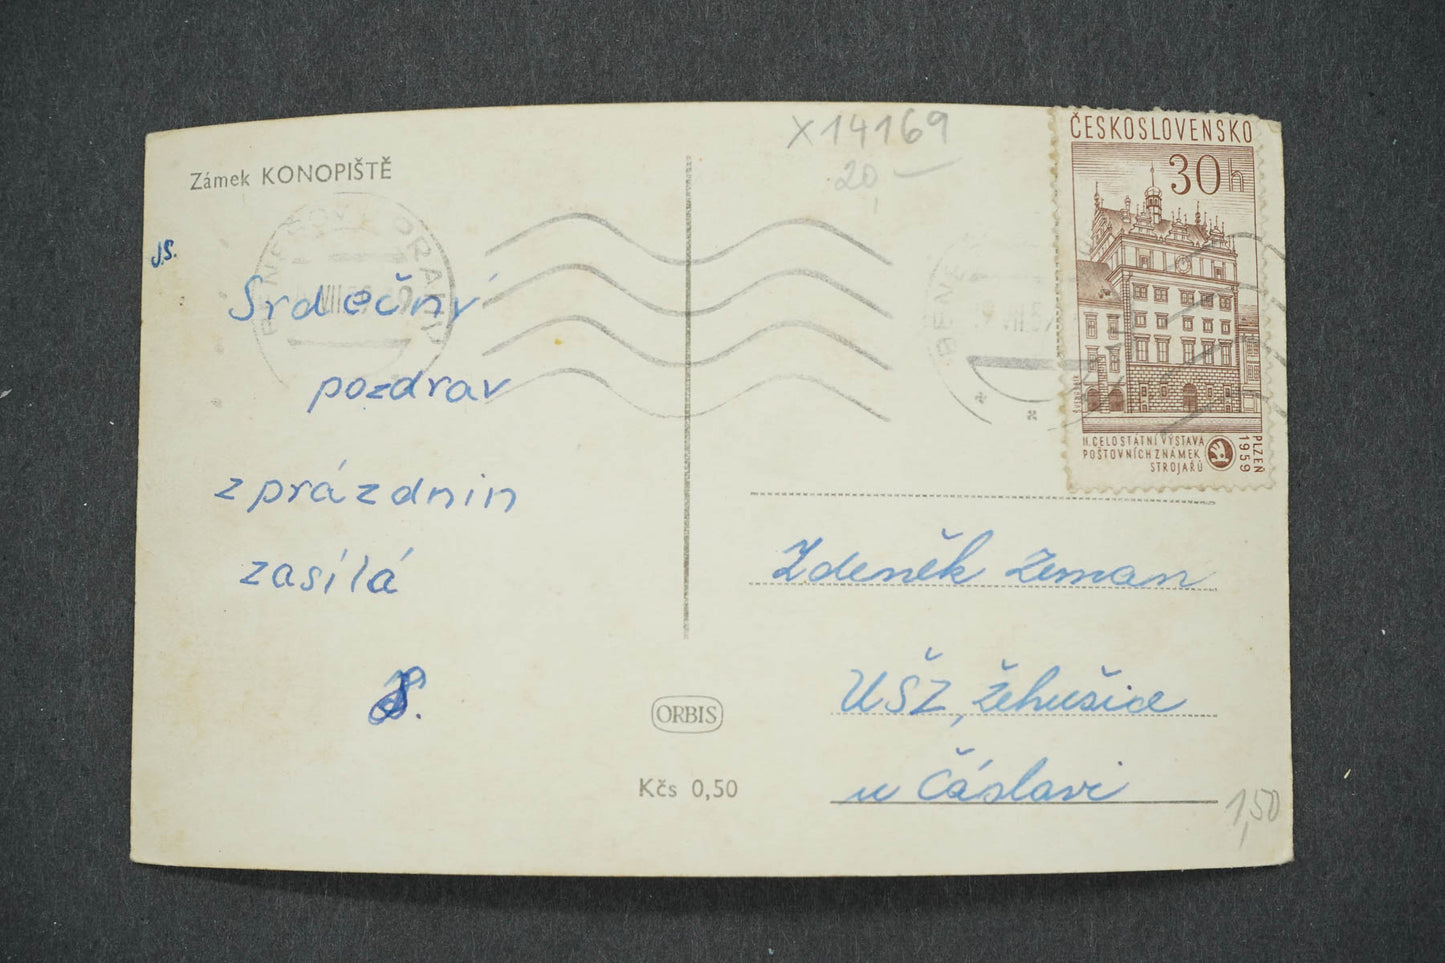 Zámek KONOPIŠTĚ
J.S.
Srdečný
pozdrav
z prázdnin
zasílá
S.
ORBIS
Kčs 0,50
X14169
20,—
ČESKOSLOVENSKO
30h
II. CELOSTÁTNÍ VÝSTAVA
POŠTOVNÍCH ZNÁMEK
STROJAŘŮ
PLZEŇ
1959
Zdeněk Zeman
UŠZ, Žehušice
u Čáslavi
1,50